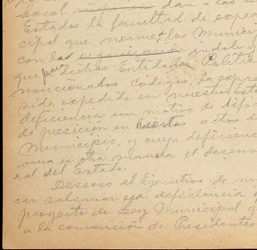 local dan a las
Estados la facultad de expe
cipal que norme los Munici
con las índole y
que dichas Entidades Polít
mencionados Códigos, la expre
sido expedita en nuestro Est
deficiencia un motivo de difi
de precisión en ciertos actos d
Municipio, y cuya deficienc
una u otra manera el desenvo
ral del Estado.
Deseoso el Ejecutivo de mi
con subsanar esa deficiencia
proyecto de Ley Municipal q
a la convención de Presidentes